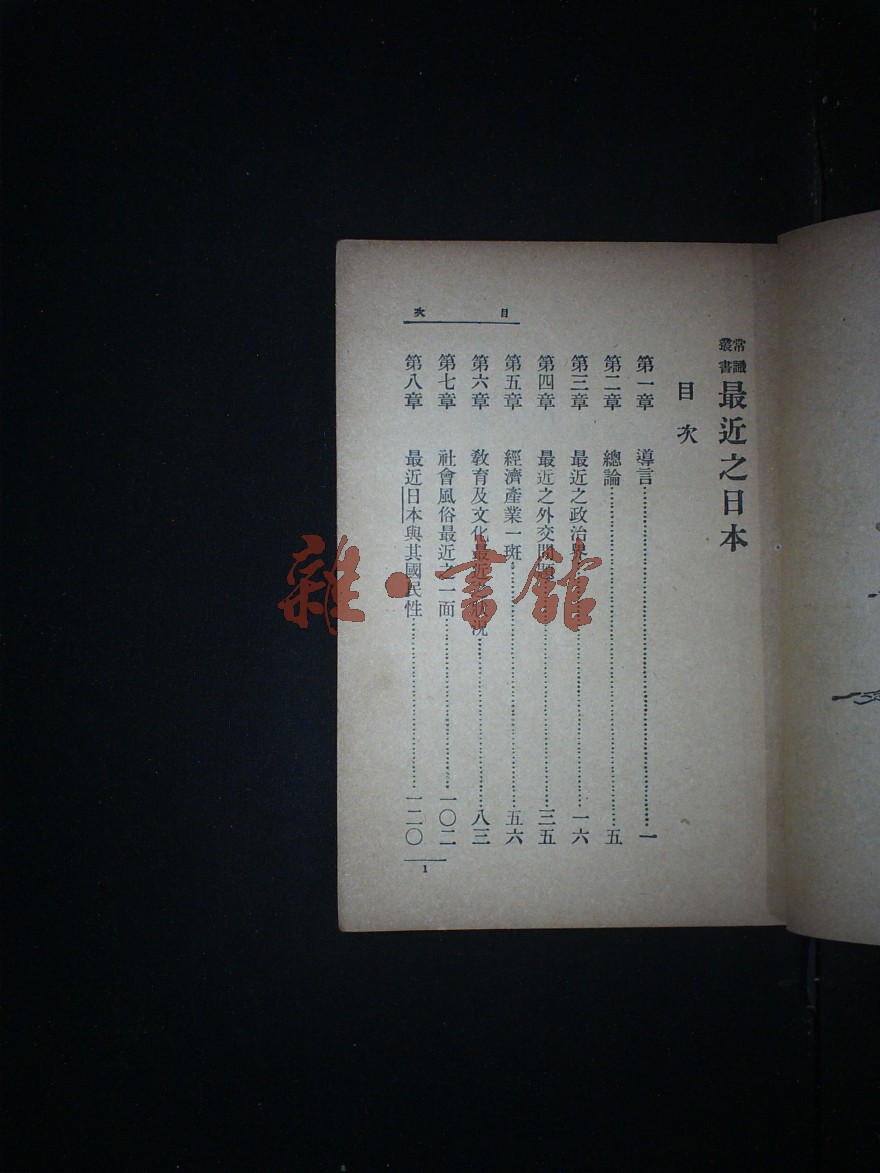 常識叢書 最近之日本
目次
第一章 導言 一
第二章 總論 五
第三章 最近之政治界 一六
第四章 最近之外交問題 三五
第五章 經濟產業一斑 五六
第六章 敎育及文化最近之狀況 八三
第七章 社會風俗最近之一面 一〇二
第八章 最近日本與其國民性 一二〇
目次
1
雜·書館